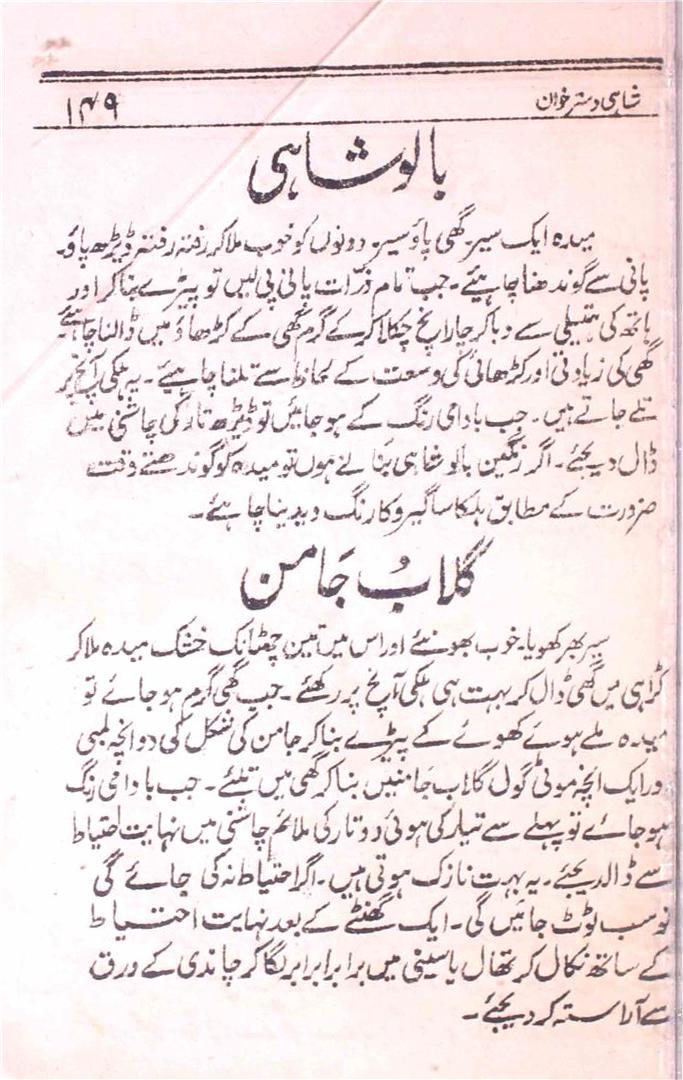 شاہی دستر خوان
۱۴۹
بالو شاہی
میدہ ایک سیر۔ گھی پاؤ سیر۔ دونوں کو خوب ملا کر رفتہ رفتہ ڈیڑھ پاؤ۔
پانی سے گوندھنا چاہئے۔ جب تمام ذرّات پانی پی لیں تو پیڑے بنا کر اور
ہاتھ کی ہتیلی سے دبا کر چار انچ چکلا کر کے گرم گھی کے کڑھاؤ میں ڈالنا چاہئے۔
گھی کی زیادتی اور کڑھائی کی وسعت کے لحاظ سے تلنا چاہیئے۔ یہ ہلکی آنچ پر
تلے جاتے ہیں۔ جب بادامی رنگ کے ہو جائیں تو ڈیڑھ تار کی چاشنی میں
ڈال دیجئے۔ اگر رنگین بالو شاہی بنانے ہوں تو میدہ کو گوندھتے وقت
ضرورت کے مطابق ہلکا سا گیرو کا رنگ دیدینا چاہئے۔
گلابُ جَامن
سیر بھر کھویا۔ خوب بھونئے اور اس میں تین چھٹانک خشک میدہ ملا کر
کڑاہی میں گھی ڈال کر بہت ہی ہلکی آنچ پر رکھئے۔ جب گھی گرم ہو جائے تو
میدہ ملے ہوئے کھوئے کے پیڑے بنا کر جامن کی شکل کی دو انچہ لمبی
ور ایک انچہ موٹی گول گلاب جَامنیں بنا کر گھی میں تلئے۔ جب بادامی رنگ
ہو جائے تو پہلے سے تیار کی ہوئی دو تار کی ملائم چاشنی میں نہایت احتیاط
سے ڈالدیجئے۔ یہ بہت نازک ہوتی ہیں۔ اگر احتیاط نہ کی جائے گی
تو سب ٹوٹ جائیں گی۔ ایک گھنٹے کے بعد نہایت احتیاط
کے ساتھ نکال کر تھال یا سینی میں برابر برابر لگا کر چاندی کے ورق
سے آراستہ کر دیجئے۔